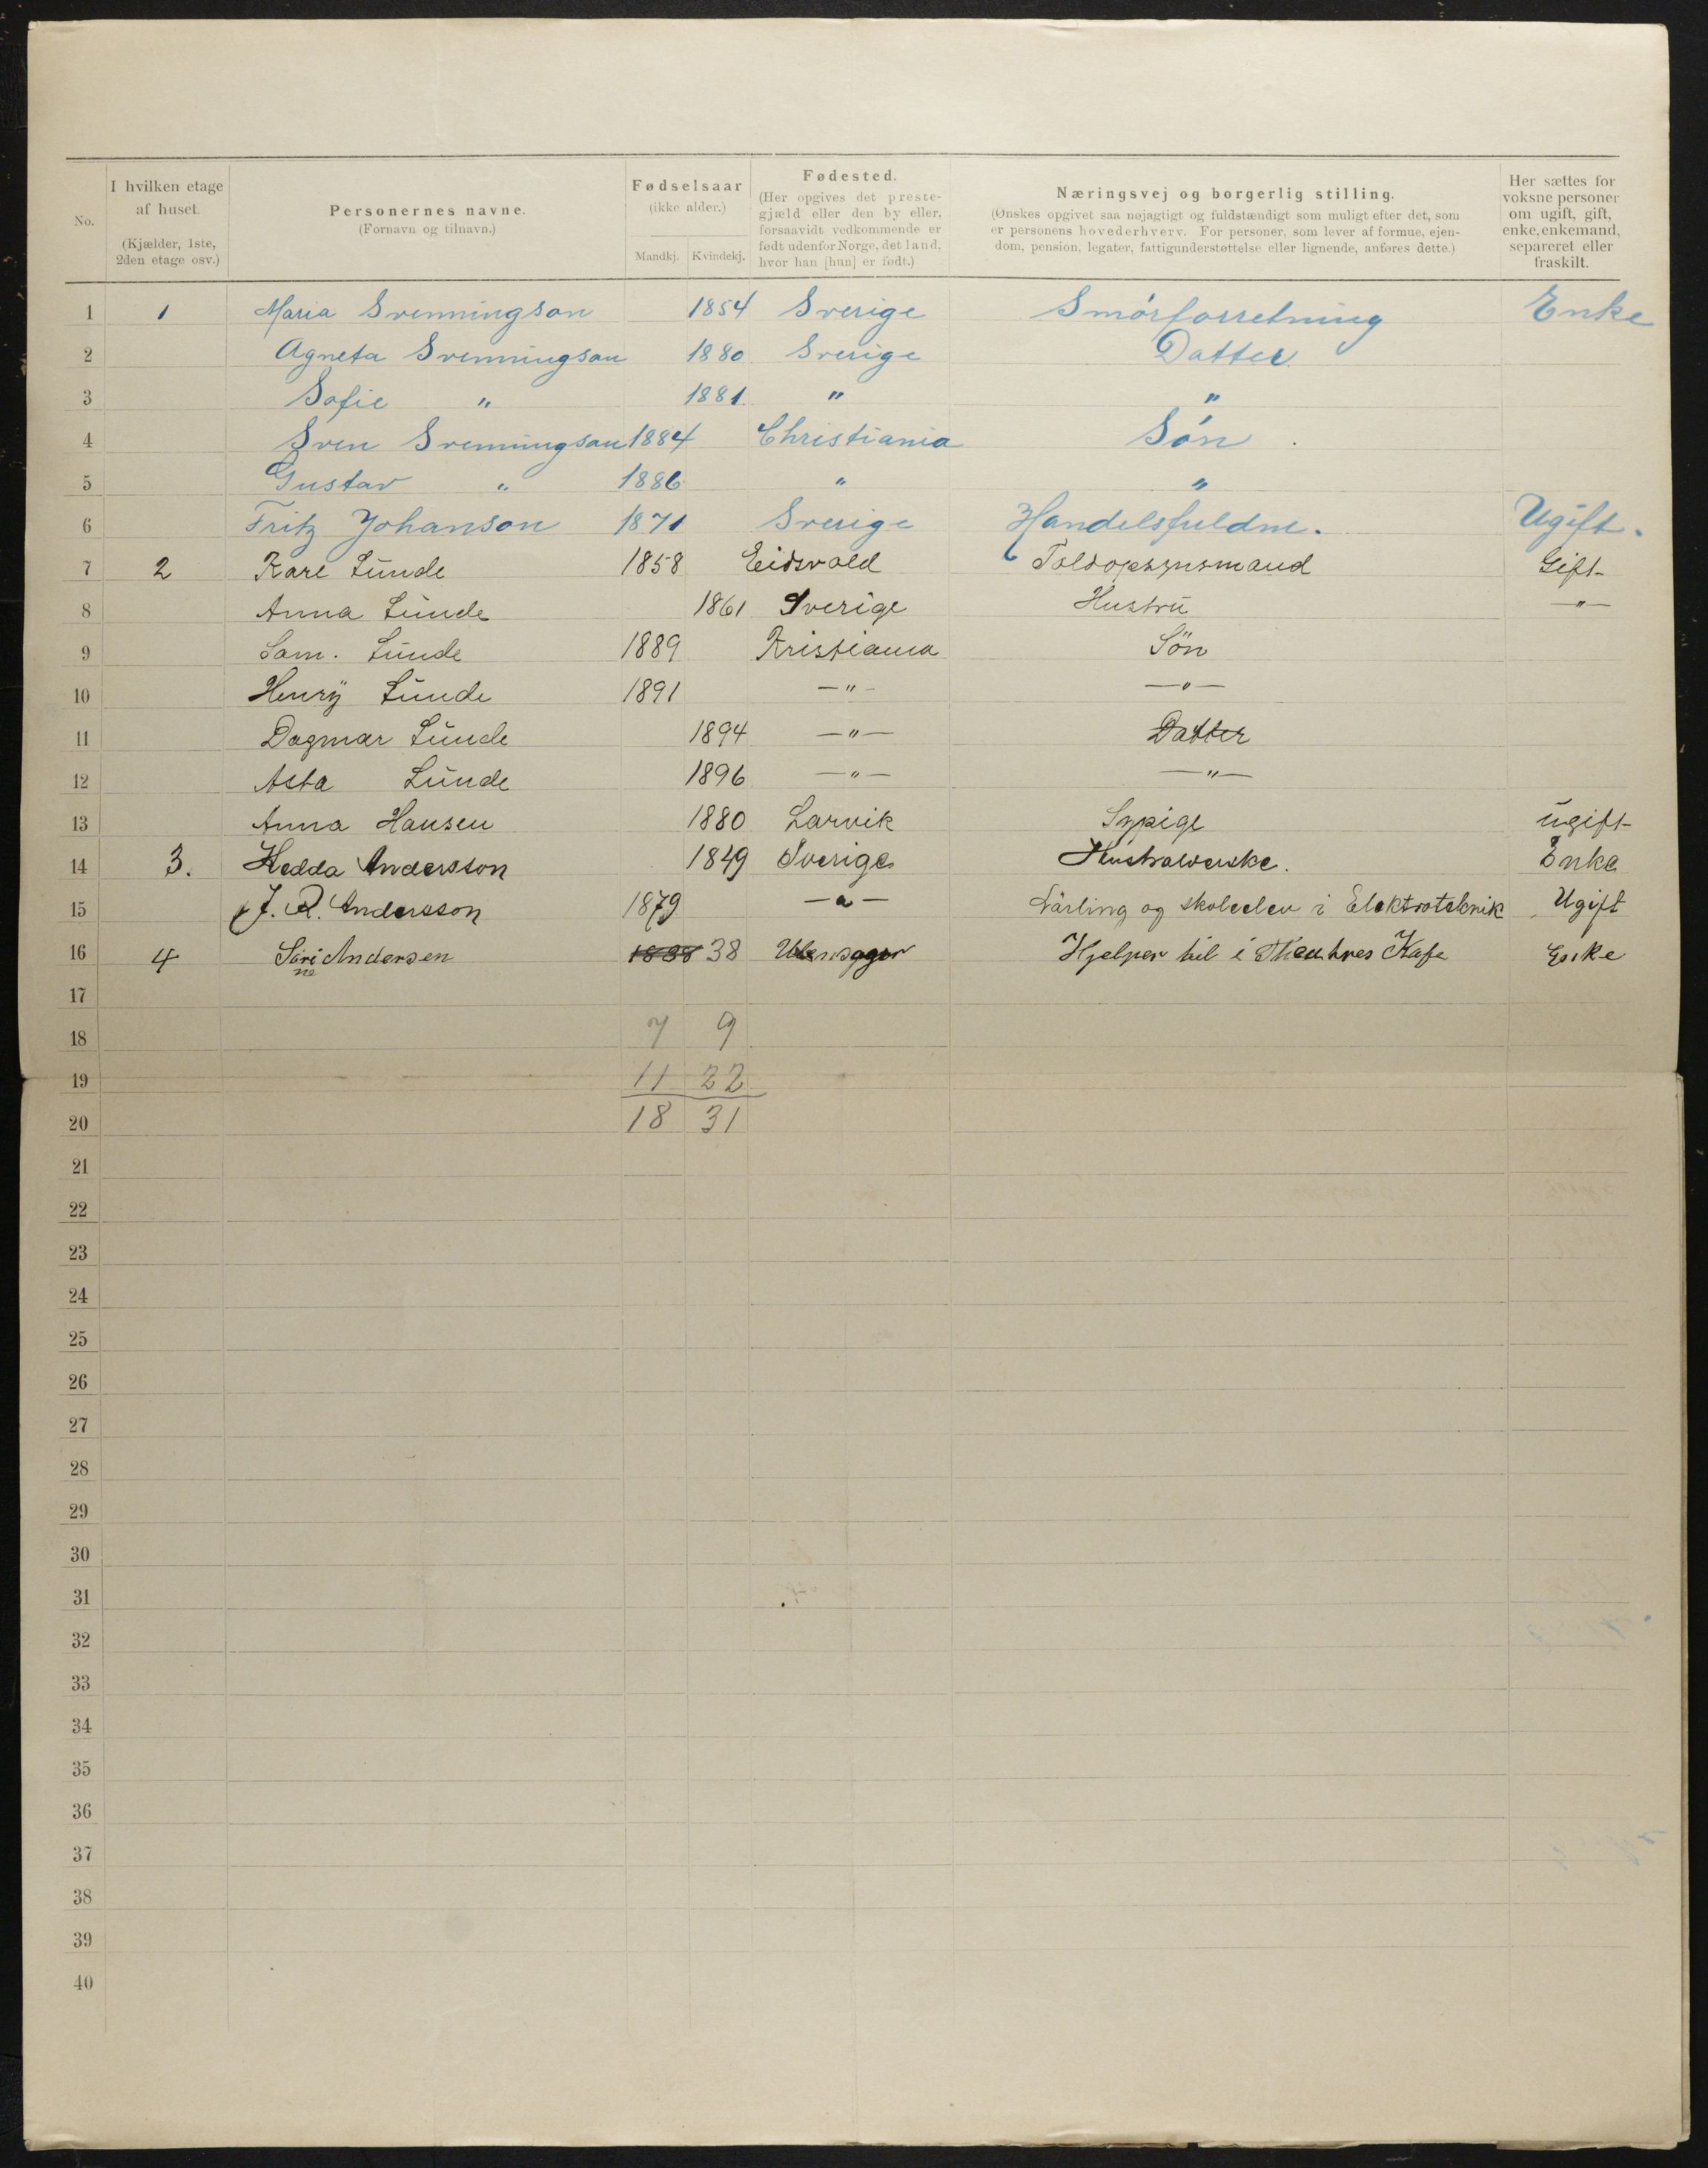 No. | I hvilken etage af huset. (Kjælder, 1ste, 2den etage osv.) | Personernes navne. (Fornavn og tilnavn.) | Fødselsaar (ikke alder.) Mandkj. Kvindekj. | Fødested. (Her opgives det prestegjæld eller den by eller, forsaavidt vedkommende er født udenfor Norge, det land, hvor han [hun] er født.) | Næringsvej og borgerlig stilling. (Ønskes opgivet saa nøjagtigt og fuldstændigt som muligt efter det, som er personens hovederhverv. For personer, som lever af formue, ejendom, pension, legater, fattigunderstøttelse eller lignende, anføres dette.) | Her sættes for voksne personer om ugift, gift, enke, enkemand, separeret eller fraskilt.
1 1 Maria Svenningson 1854 Sverige Smörforretning Enke
2 Agneta Svenningson 1880 Sverige Datter
3 Sofie " 1881 " "
4 Sven Svenningson 1884 Christiania Sön
5 Gustav " 1886 " "
6 Fritz Johanson 1871 Sverige Handelsfuldm. Ugift.
7 2 Karl Lunde 1858 Eidsvold Toldopsynsmand Gift
8 Anna Lunde 1861 Sverige Hustru —"—
9 Sam. Lunde 1889 Kristiania Sön
10 Henry Lunde 1891 —"— —"—
11 Dagmar Lunde 1894 —"— Datter
12 Asta Lunde 1896 —"— —"—
13 Anna Hansen 1880 Larvik Sypige ugift
14 3. Hedda Andersson 1849 Sverige Enke
15 J. R. Andersson 1879 —"— Lärling og skoleelev i Elektroteknik Ugift
16 4 Sörine Andersen 1838 38 Ullensager Hjelper til i Theatres Kafe Enke
17
18 7 9
19 11 22
20 18 31
21
22
23
24
25
26
27
28
29
30
31
32
33
34
35
36
37
38
39
40